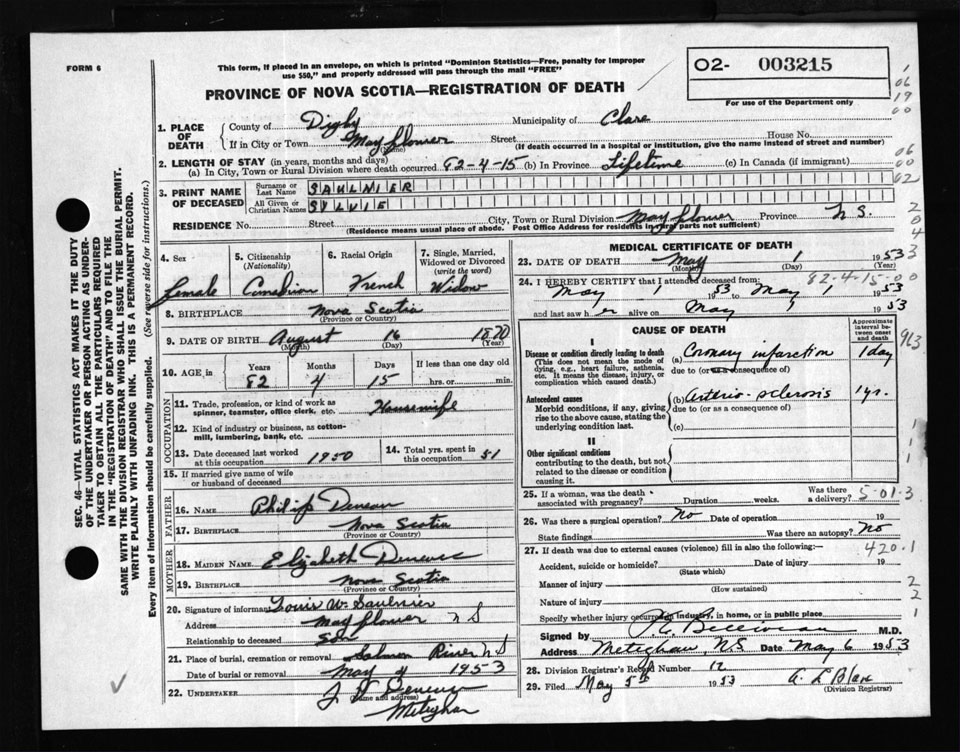 FORM 6
This form, if placed in an envelope, on which is printed "Dominion Statistics—Free, penalty for improper
use $50," and properly addressed will pass through the mail "FREE"
PROVINCE OF NOVA SCOTIA—REGISTRATION OF DEATH
02- 003215
For use of the Department only
1. PLACE OF DEATH
County of Digby Municipality of Clare
If in City or Town Mayflower Street House No.
(Name) (If death occurred in a hospital or institution, give the name instead of street and number)
2. LENGTH OF STAY (in years, months and days)
(a) In City, Town or Rural Division where death occurred 82-4-15 (b) In Province Lifetime (c) In Canada (if immigrant)
3. PRINT NAME OF DECEASED
Surname or Last Name SAULNIER
All Given or Christian Names SYLVIE
RESIDENCE No. Street City, Town or Rural Division Mayflower Province N S.
(Residence means usual place of abode. Post Office Address for residents in rural parts not sufficient)
4. Sex
Female
5. Citizenship
(Nationality)
Canadian
6. Racial Origin
French
7. Single, Married,
Widowed or Divorced
(write the word)
Widow
8. BIRTHPLACE Nova Scotia
(Province or Country)
9. DATE OF BIRTH August 16 1870
(Month) (Day) (Year)
10. AGE in
Years Months Days If less than one day old
82 4 15 hrs. or min.
OCCUPATION
11. Trade, profession, or kind of work as
spinner, teamster, office clerk, etc. Housewife
12. Kind of industry or business, as cotton-
mill, lumbering, bank, etc.
13. Date deceased last worked
at this occupation 1950
14. Total yrs. spent in
this occupation 51
15. If married give name of wife
or husband of deceased
FATHER
16. NAME Philip
17. BIRTHPLACE Nova Scotia
(Province or Country)
MOTHER
18. MAIDEN NAME Elizabeth
19. BIRTHPLACE Nova Scotia
(Province or Country)
20. Signature of informant Louis W. Saulnier
Address Mayflower N S
Relationship to deceased Son
21. Place of burial, cremation or removal Salmon River N S
Date of burial or removal May 4 1953
22. UNDERTAKER
(Name and address)
Meteghan
MEDICAL CERTIFICATE OF DEATH
23. DATE OF DEATH May 1 1953
(Month) (Day) (Year)
82-4-15-00
24. I HEREBY CERTIFY that I attended deceased from
May 1 1953 to May 1 1953
and last saw her alive on May 1 1953
CAUSE OF DEATH
Approximate interval between onset and death
I
Disease or condition directly leading to death
(This does not mean the mode of
dying, e.g., heart failure, asthenia,
etc. It means the disease, injury, or
complication which caused death.)
(a) Coronary infarction 1 day
due to (or as a consequence of)
Antecedent causes
Morbid conditions, if any, giving
rise to the above cause, stating the
underlying condition last.
(b) Arterio-sclerosis 1 yr.
due to (or as a consequence of)
(c)
II
Other significant conditions
contributing to the death, but not
related to the disease or condition
causing it.
25. If a woman, was the death
associated with pregnancy? Duration weeks. Was there a delivery?
5-01-3
26. Was there a surgical operation? No Date of operation
State findings Was there an autopsy? No
27. If death was due to external causes (violence) fill in also the following:—
420.1
Accident, suicide or homicide? Date of injury 19
(State which)
Manner of injury
(How sustained)
Nature of injury
Specify whether injury occurred in industry, in home, or in public place
Signed by M.D.
Address Meteghan, N.S Date May 6 1953
28. Division Registrar's Record Number 12
29. Filed May 5th 1953
(Division Registrar)
SEC. 46—VITAL STATISTICS ACT MAKES IT THE DUTY
OF THE UNDERTAKER OR PERSON ACTING AS UNDER-
TAKER TO OBTAIN ALL THE PARTICULARS REQUIRED
IN THE "REGISTRATION OF DEATH" AND TO FILE THE
SAME WITH THE DIVISION REGISTRAR WHO SHALL ISSUE THE BURIAL PERMIT.
WRITE PLAINLY WITH UNFADING INK. THIS IS A PERMANENT RECORD.
Every item of information should be carefully supplied. (See reverse side for instructions.)
963